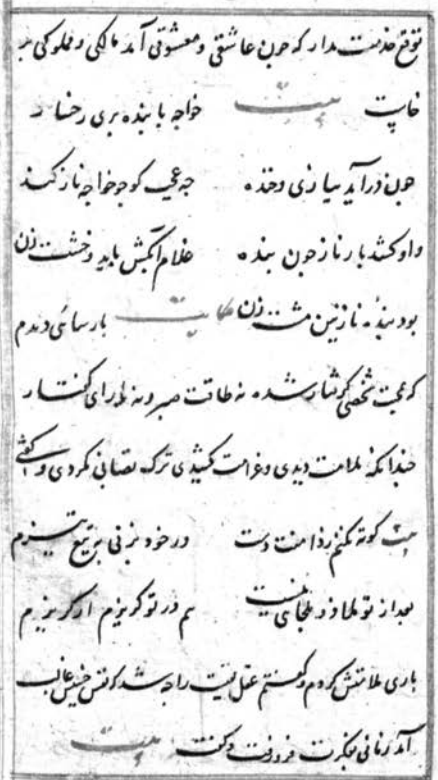 توقع خدمت مدار که چون عاشقی و معشوقی آمد مالکی و مملوکی بر
خاست بیت خواجه با بنده پری رخسار
چون درآید ببازی و خنده چه عجب کو چو خواجه ناز کند
و او کشد بار ناز چون بنده غلام آبکش باید و خشت زن
بود بنده نازنین مشت زن حکایت پارسائی دیدم
که بمحبت شخصی گرفتار شده نه طاقت صبر و نه یارای گفتار
چندانکه ملامت دیدی و غرامت کشیدی ترک تصابی نکردی و گفتی
بیت کوته نکنم ز دامنت دست ور خود بزنی به تیغ تیزم
بعد از تو ملاذ و ملجائی نیست هم در تو گریزم ار گریزم
باری ملامتش کردم و گفتم عقل نفیست را چه شد که نفس خسیس غالب
آمد زمانی بفکرت فرو رفت و گفت بیت